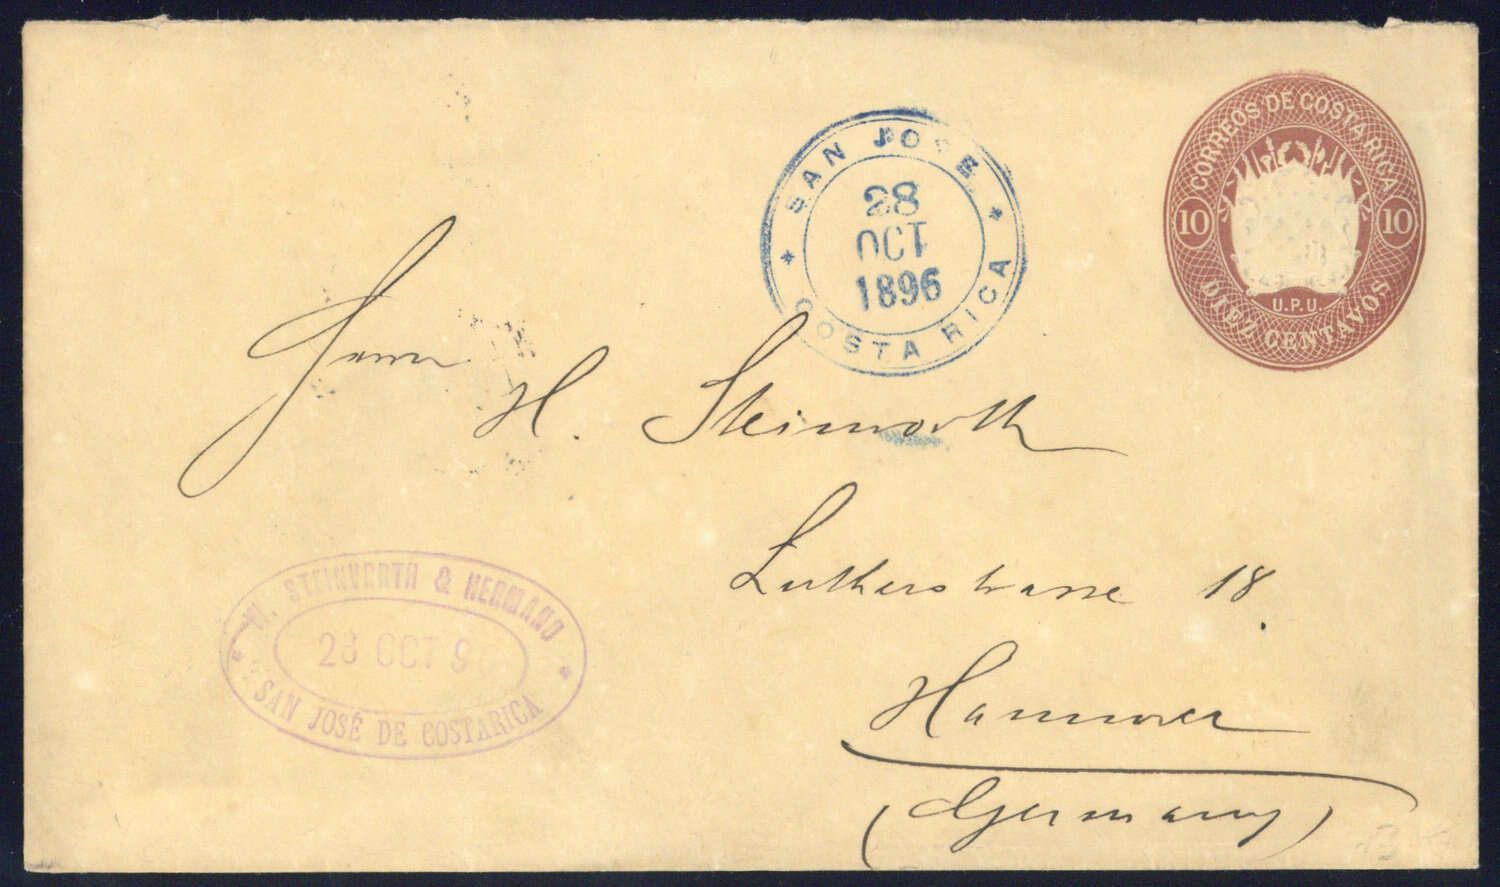 CORREOS DE COSTA RICA
10 10
U.P.U.
DIEZ CENTAVOS
SAN JOSE
28
OCT
1896
COSTA RICA
Herrn
H. Steinworth
Lutherstrasse 18.
Hannover
(Germany)
W. STEINVORTH & HERMANO
28 OCT 96
SAN JOSÉ DE COSTARICA